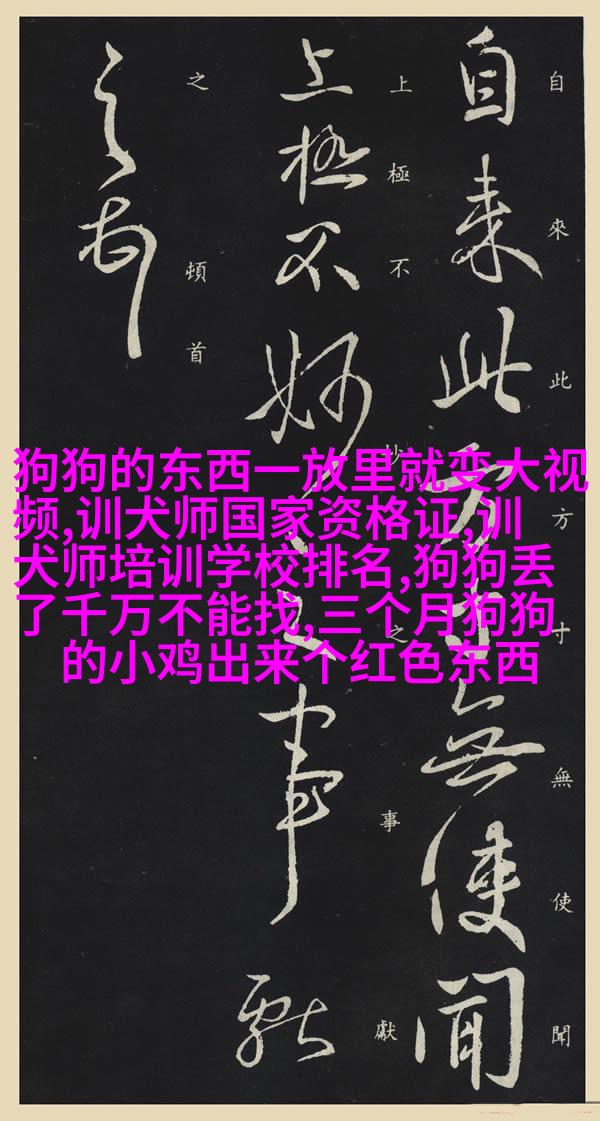 自來此方寸無使聞
自来此方寸無使聞
上極不妙之事獻
上極不妙之事獻
之頓首
之頓首
狗狗的东西一放里就变大视
频,训犬师国家资格证,训
犬师培训学校排名,狗狗丢
了千万不能找,三个月狗狗
的小鸡出来个红色东西